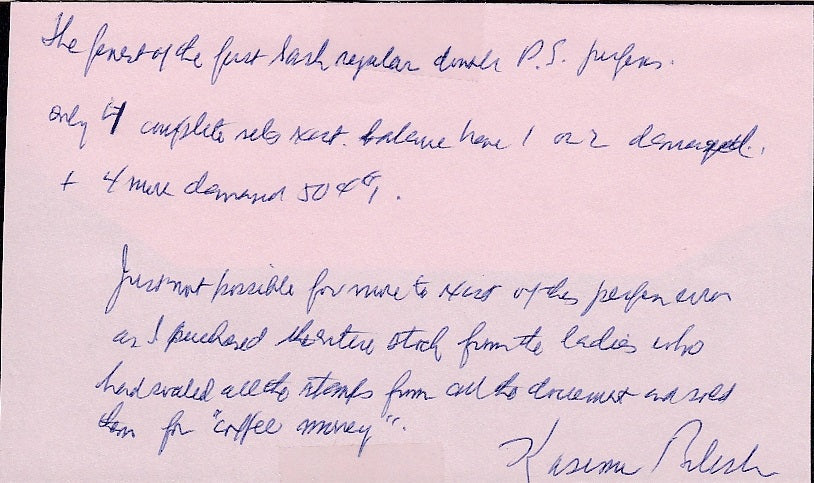 The finest of the first Sask regular double P.S. perfins.
only 4 complete sets exist. balance have 1 or 2 damaged.
+ 4 more damaged 50 ¢
Just not possible for more to exist of this perfin error
as I purchased the entire stock from the ladies who
had soaked all the stamps from all the document and sold
them for "coffee money".